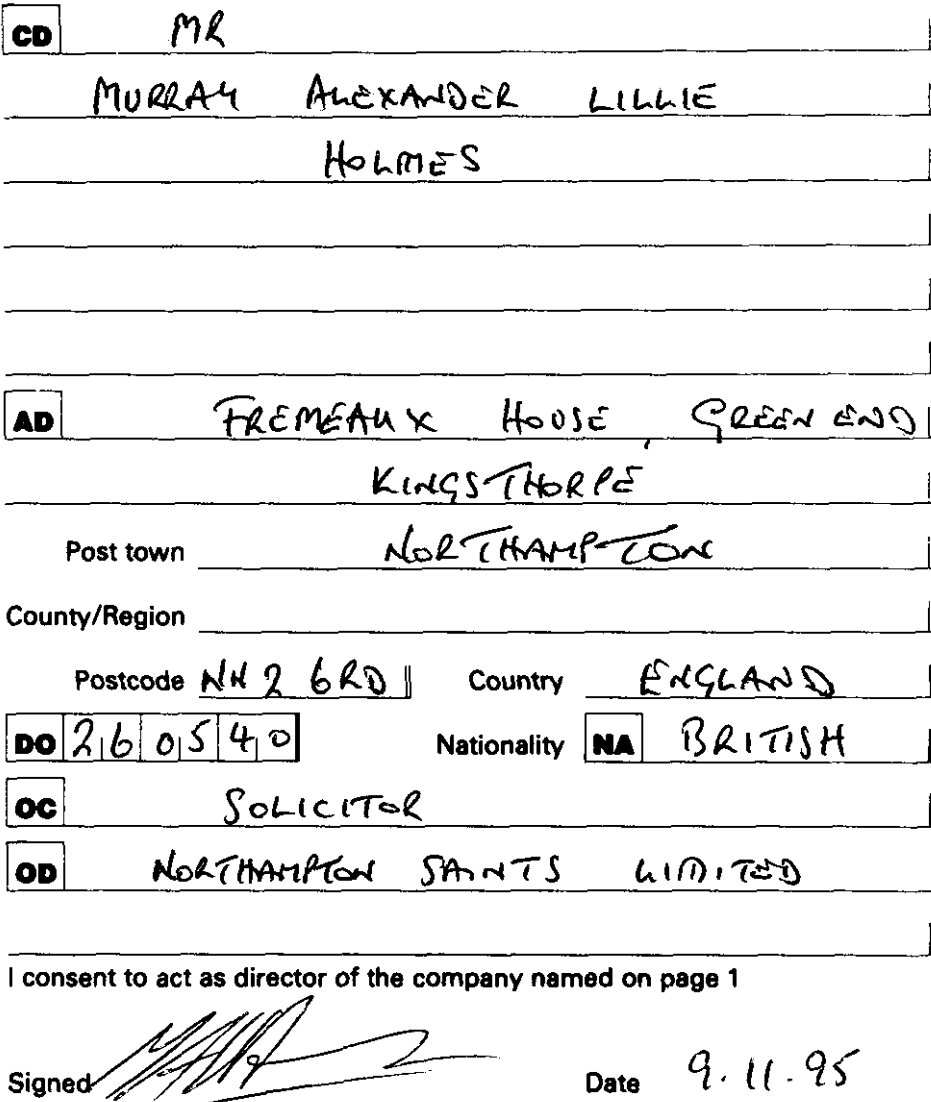 CD MR
MURRAY ALEXANDER LILLIE
HOLMES
AD FREMEAUX HOUSE, GREEN END
KINGSTHORPE
Post town NORTHAMPTON
County/Region
Postcode NN2 6RD Country ENGLAND
DO 260540 Nationality NA BRITISH
OC SOLICITOR
OD NORTHAMPTON SAINTS LIMITED
I consent to act as director of the company named on page 1
Signed Date 9.11.95